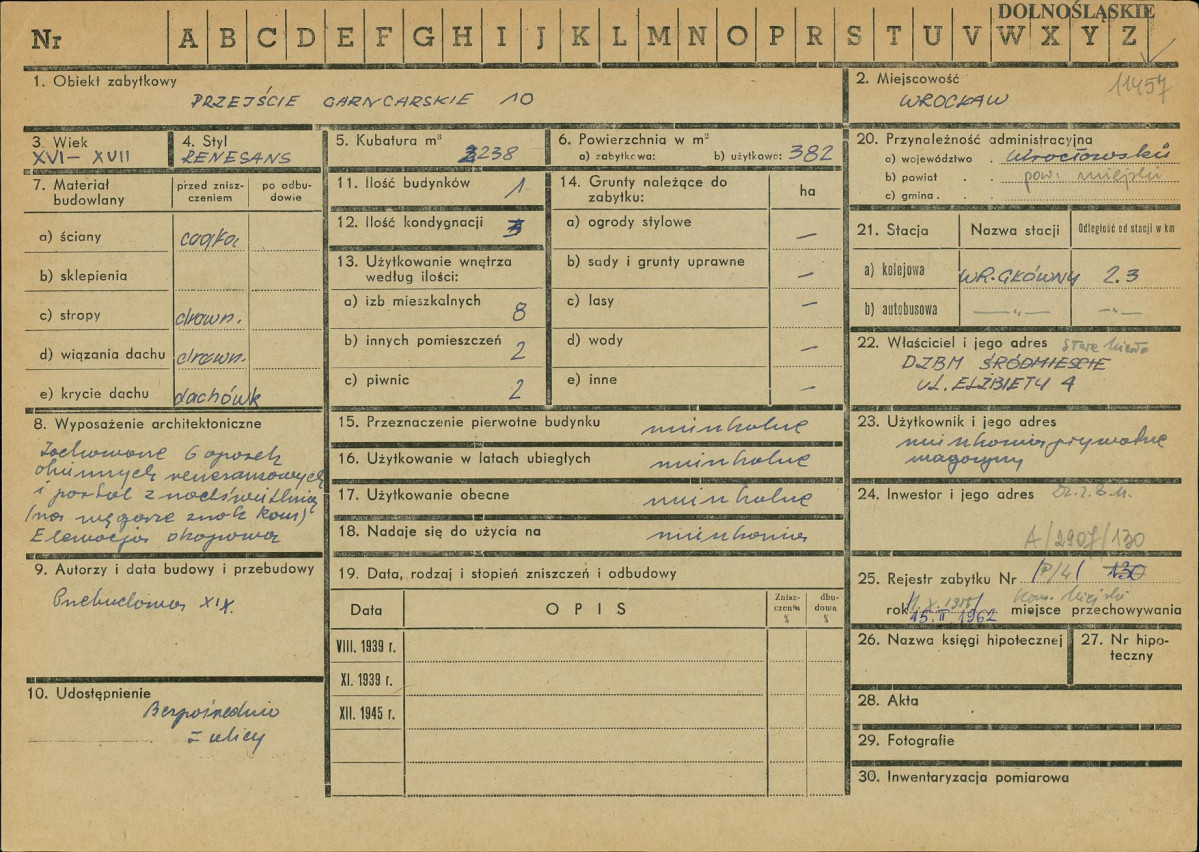 DOLNOŚLĄSKIE
Nr A B C D E F G H I J K L M N O P R S T U V W X Y Z
1. Obiekt zabytkowy
PRZEJŚCIE GARNCARSKIE 10
2. Miejscowość
11457
WROCŁAW
3. Wiek
XVI – XVII
4. Styl
RENESANS
5. Kubatura m³
2238
6. Powierzchnia w m²
a) zabytkowa: b) użytkowa: 382
7. Materiał budowlany
przed zniszczeniem
po odbudowie
a) ściany cegła
b) sklepienia
c) stropy drewn.
d) wiązania dachu drewn.
e) krycie dachu dachówk
8. Wyposażenie architektoniczne
Zachowane 6 opasek
okiennych renesansowych
i portal z nadświetlnią
(na węgarze znak kam)
Elewacja okapowa
9. Autorzy i data budowy i przebudowy
Przebudowa XIX
10. Udostępnienie
Bezpośrednio
z ulicy
11. Ilość budynków 1
12. Ilość kondygnacji
13. Użytkowanie wnętrza
według ilości:
a) izb mieszkalnych 8
b) innych pomieszczeń 2
c) piwnic 2
14. Grunty należące do
zabytku:
ha
a) ogrody stylowe —
b) sady i grunty uprawne —
c) lasy —
d) wody —
e) inne —
15. Przeznaczenie pierwotne budynku mieszkalne
16. Użytkowanie w latach ubiegłych mieszkalne
17. Użytkowanie obecne mieszkalne
18. Nadaje się do użycia na mieszkania
19. Data, rodzaj i stopień zniszczeń i odbudowy
Data OPIS Zniszczenia % dbudowa %
VIII. 1939 r.
XI. 1939 r.
XII. 1945 r.
20. Przynależność administracyjna
a) województwo . Wrocławskie
b) powiat . . pow. miejski
c) gmina . . .
21. Stacja Nazwa stacji Odległość od stacji w km
a) kolejowa WR. GŁÓWNY 2.3
b) autobusowa —„— —„—
22. Właściciel i jego adres Stare Miasto
DZBM ŚRÓDMIEŚCIE
UL. ELŻBIETY 4
23. Użytkownik i jego adres
mieszkania prywatne
magazyny
24. Inwestor i jego adres Dz.Z.B.M.
A/2907/130
25. Rejestr zabytku Nr /P/4/ 130
Kons. Miejski
rok 15.II 1962 miejsce przechowywania
26. Nazwa księgi hipotecznej
27. Nr hipoteczny
28. Akta
29. Fotografie
30. Inwentaryzacja pomiarowa